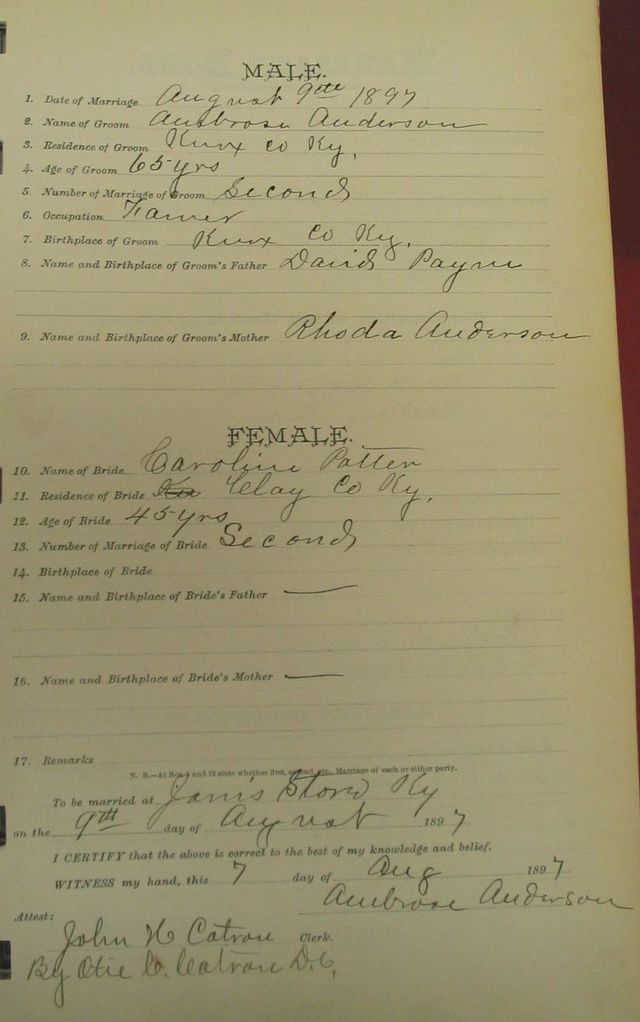 MALE.
1. Date of Marriage August 9th 1897
2. Name of Groom Ambrose Anderson
3. Residence of Groom Knox Co Ky.
4. Age of Groom 65 yrs
5. Number of Marriage of Groom Second
6. Occupation Farmer
7. Birthplace of Groom Knox Co Ky.
8. Name and Birthplace of Groom's Father David Payne
9. Name and Birthplace of Groom's Mother Rhoda Anderson
FEMALE.
10. Name of Bride Caroline Potter
11. Residence of Bride Clay Co Ky.
12. Age of Bride 45 yrs
13. Number of Marriage of Bride Second
14. Birthplace of Bride
15. Name and Birthplace of Bride's Father —
16. Name and Birthplace of Bride's Mother —
17. Remarks
N. B.—At Nos. 5 and 13 state whether first, second, etc., Marriage of each or either party.
To be married at Store Ky
on the 9th day of August 1897
I CERTIFY that the above is correct to the best of my knowledge and belief.
WITNESS my hand, this 7 day of Aug 1897
Ambrose Anderson
Attest:
John H Catron Clerk.
By Catron D.C.